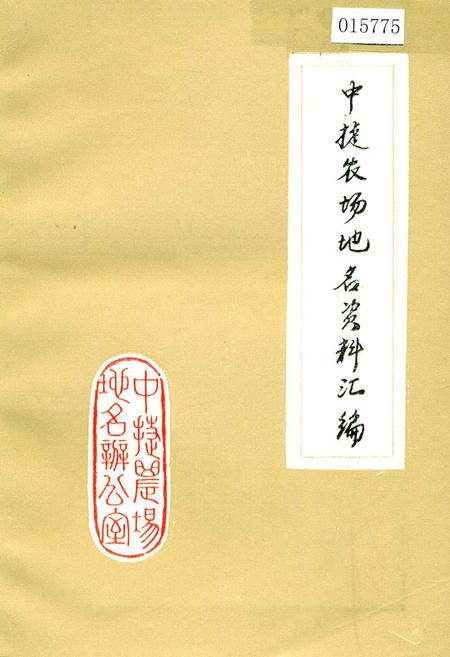 015775
中捷农场地名资料汇编
中捷農場
地名辦公室